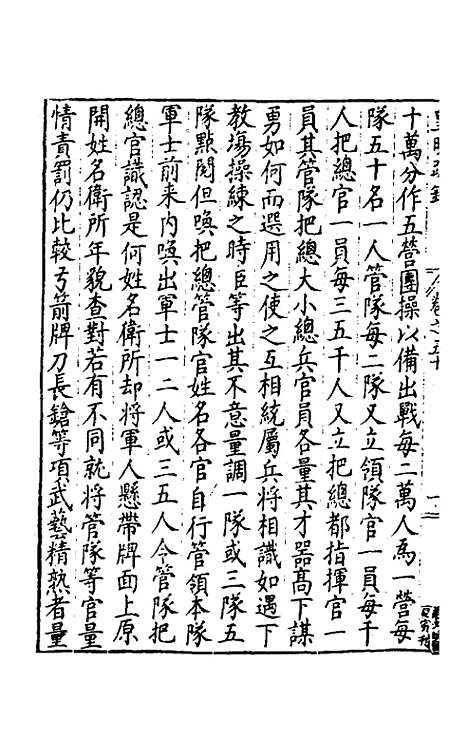 十萬分作五營團操以備出戰每二萬人為一營每
隊五十名一人管隊每二隊又立領隊官一員每千
人把總官一員每三五千人又立把總都指揮官一
員其管隊把總大小總兵官員各量其才器高下謀
勇如何而選用之使之互相統屬兵將相識如遇下
教場操練之時臣等出其不意量調一隊或三隊五
隊點閱但喚把總管隊官姓名各官自行管領本隊
軍士前来内喚出軍士一二人或三五人令管隊把
總官識認是何姓名衛所却將軍人懸帶牌面上原
開姓名衛所年貌查對若有不同就將管隊等官量
情責罰仍比較弓箭牌刀長鎗等項武藝精熟者量